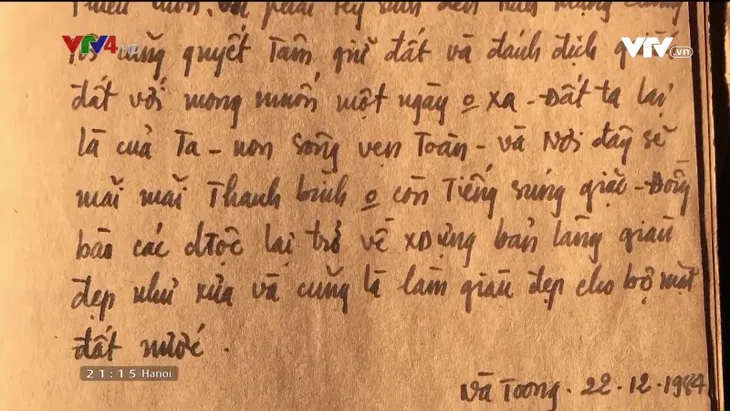 VTV4 HD
VTV.vn
phải hy sinh đến tính mạng
cũng quyết Tâm giữ đất và đánh địch
đất với mong muốn một ngày o xa - Đất ta lại
là của Ta - non sông vẹn Toàn - và Nơi đây sẽ
mãi mãi Thanh bình o còn Tiếng súng giặc - Đồng
bào các dtộc lại trở về xDựng bản làng giàu
đẹp như xưa và cũng là làm giàu đẹp cho bộ mặt
đất nước.
21:15 Hanoi
Nà Toong. 22.12.1984